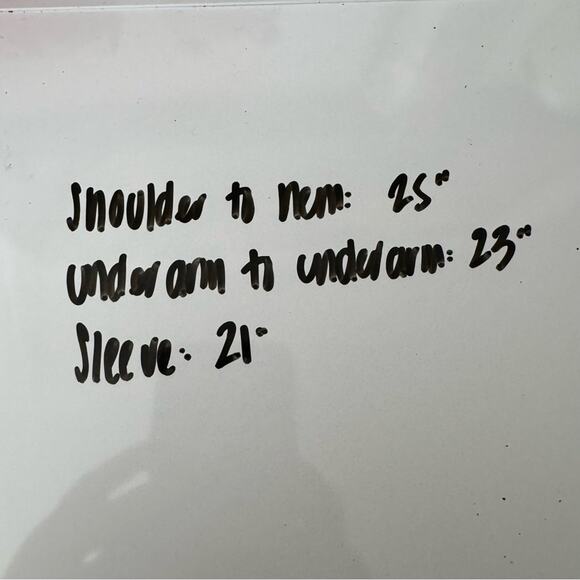 shoulder to hem: 25"
underarm to underarm: 23"
Sleeve: 21"